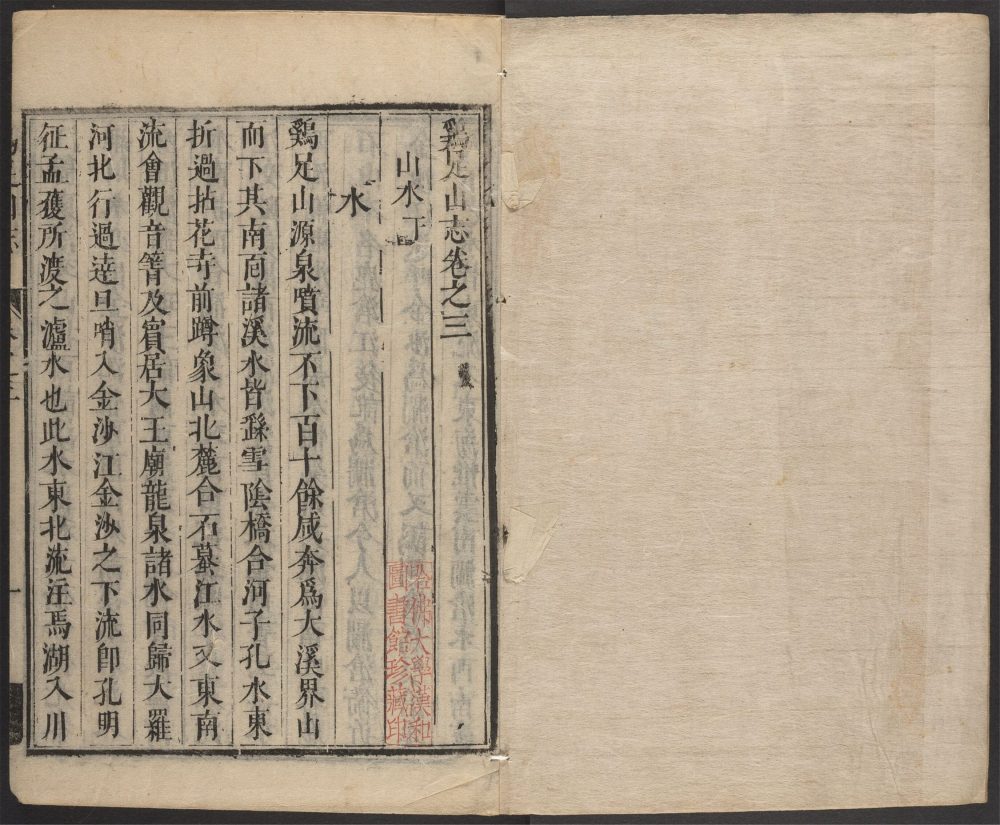 鷄足山志卷之三
山水下
水
鷄足山源泉噴流不下百十餘咸奔爲大溪界山
而下其南面諸溪水皆繇雪陰橋合河子孔水東
折過拈花寺前蹲象山北麓合石䝉江水又東南
流會觀音箐及賓居大王廟龍泉諸水同歸大羅
河北行過達旦哨入金沙江金沙之下流卽孔明
征孟獲所渡之瀘水也此水東北流注馬湖入川
哈佛大學漢和
圖書館珍藏印